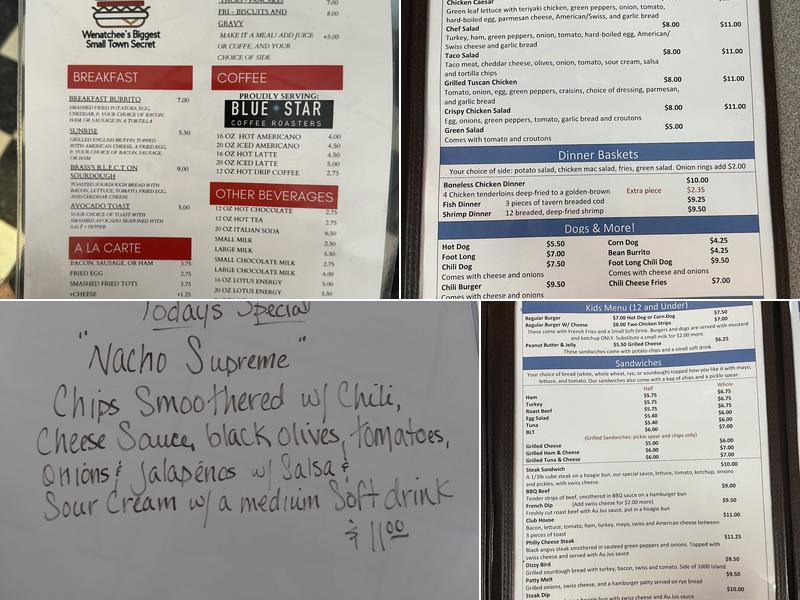 Wenatchee's Biggest
Small Town Secret
BREAKFAST
BREAKFAST BURRITO 7.00
SMASHED FRIED POTATOES, EGG,
CHEDDAR, & YOUR CHOICE OF BACON,
HAM, OR SAUSAGE IN A TORTILLA
SUNRISE 5.50
GRILLED ENGLISH MUFFIN TOPPED
WITH AMERICAN CHEESE, A FRIED EGG,
& YOUR CHOICE OF BACON, SAUSAGE,
OR HAM
BRASS'S B.L.E.C.T ON 9.00
SOURDOUGH
TOASTED SOURDOUGH BREAD WITH
BACON, LETTUCE, TOMATO, FRIED EGG,
AND CHEDDAR CHEESE
AVOCADO TOAST 5.00
YOUR CHOICE OF TOAST WITH
SMASHED AVOCADO SEASONED WITH
SALT + PEPPER
A LA CARTE
BACON, SAUSAGE, OR HAM 3.75
FRIED EGG 2.75
SMASHED FRIED TOTS 3.75
+CHEESE +1.25
7.00
FRI - BISCUITS AND 8.00
GRAVY
MAKE IT A MEAL! ADD JUICE +5.00
OR COFFE, AND YOUR
CHOICE OF SIDE
COFFEE
PROUDLY SERVING:
BLUE STAR
COFFEE ROASTERS
16 OZ HOT AMERICANO 4.00
20 OZ ICED AMERICANO 4.50
16 OZ HOT LATTE 4.50
20 OZ ICED LATTE 5.00
12 OZ HOT DRIP COFFEE 2.75
OTHER BEVERAGES
12 OZ HOT CHOCOLATE 2.75
12 OZ HOT TEA 2.75
20 OZ ITALIAN SODA 6.50
SMALL MILK 2.50
LARGE MILK 5.50
SMALL CHOCOLATE MILK 2.75
LARGE CHOCOLATE MILK 6.00
16 OZ LOTUS ENERGY 5.00
20 OZ LOTUS ENERGY 5.50
Chicken Caesar
Green leaf lettuce with teriyaki chicken, green peppers, onion, tomato,
hard-boiled egg, parmesan cheese, American/Swiss, and garlic bread
Chef Salad $8.00 $11.00
Turkey, ham, green peppers, onion, tomato, hard-boiled egg, American/
Swiss cheese and garlic bread
Taco Salad $8.00 $11.00
Taco meat, cheddar cheese, olives, onion, tomato, sour cream, salsa
and tortilla chips
Grilled Tuscan Chicken $8.00 $11.00
Tomato, onion, egg, green peppers, craisins, choice of dressing, parmesan,
and garlic bread
Crispy Chicken Salad $8.00 $11.00
Egg, onions, green peppers, tomato, garlic bread and croutons
Green Salad $5.00
Comes with tomato and croutons
Dinner Baskets
Your choice of side: potato salad, chicken mac salad, fries, green salad. Onion rings add $2.00
Boneless Chicken Dinner $10.00
4 Chicken tenderloins deep-fried to a golden-brown Extra piece $2.35
Fish Dinner 3 pieces of tavern breaded cod $9.25
Shrimp Dinner 12 breaded, deep-fried shrimp $9.50
Dogs & More!
Hot Dog $5.50 Corn Dog $4.25
Foot Long $7.00 Bean Burrito $4.25
Chili Dog $7.50 Foot Long Chili Dog $9.50
Comes with cheese and onions Comes with cheese and onions
Chili Burger $9.50 Chili Cheese Fries $7.00
Comes with cheese and onions
Todays Special
"Nacho Supreme"
Chips Smoothered w/ Chili,
Cheese Sauce, black olives, tomatoes,
Onions & Jalapenos w/ Salsa &
Sour Cream w/ a medium Soft drink
$11.00
Kids Menu (12 and Under)
Regular Burger $7.00 Hot Dog or Corn Dog $7.50
Regular Burger W/ Cheese $8.00 Two Chicken Strips $7.00
These come with French Fries and a Small Soft Drink. Burgers and dogs are served with mustard
and ketchup ONLY. Substitute a small milk for $2.00 more.
Peanut Butter & Jelly $5.50 Grilled Cheese $6.25
These sandwiches come with potato chips and a small soft drink.
Sandwiches
Your choice of bread (white, whole wheat, rye, or sourdough) topped how you like it with mayo,
lettuce, and tomato. Our sandwiches also come with a bag of chips and a pickle spear.
Half Whole
Ham $5.75 $6.75
Turkey $5.75 $6.75
Roast Beef $5.75 $6.75
Egg Salad $5.40 $6.00
Tuna $5.40 $6.00
BLT $6.00 $7.00
(Grilled Sandwiches: pickle spear and chips only)
Grilled Cheese $5.00 $6.00
Grilled Ham & Cheese $6.00 $7.00
Grilled Tuna & Cheese $6.00 $7.00
Steak Sandwich $10.00
A 1/3lb cube steak on a hoagie bun, our special sauce, lettuce, tomato, ketchup, onions
and pickles, with swiss cheese.
BBQ Beef $9.00
Tender strips of beef, smothered in BBQ sauce on a hamburger bun
French Dip (Add swiss cheese for $2.00 more) $9.50
Freshly cut roast beef with Au Jus sauce, put in a hoagie bun
Club House $11.00
Bacon, lettuce, tomato, ham, turkey, mayo, swiss and American cheese between
3 pieces of toast
Philly Cheese Steak $11.25
Black angus steak smothered in sauteed green peppers and onions. Topped with
swiss cheese and served with Au Jus sauce
Dizzy Bird $9.50
Grilled sourdough bread with turkey, bacon, swiss and tomato. Side of 1000 Island.
Patty Melt $9.50
Grilled onions, swiss cheese, and a hamburger patty served on rye bread
Steak Dip $10.00